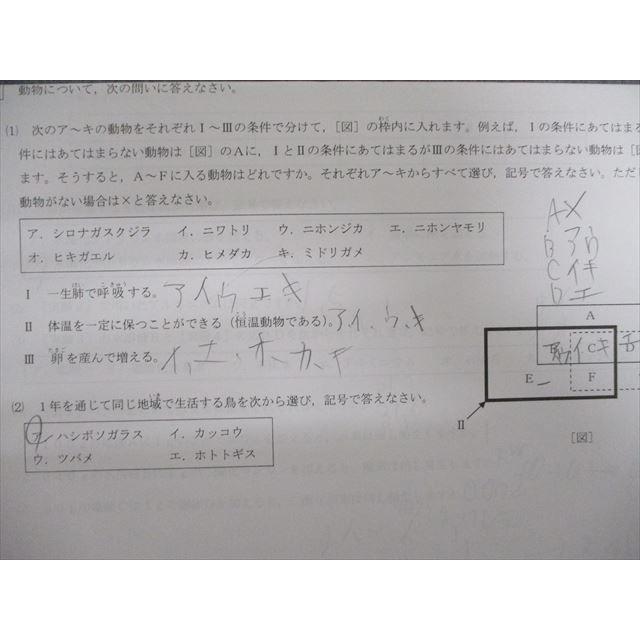 動物について，次の問いに答えなさい。
(1) 次のア～キの動物をそれぞれⅠ～Ⅲの条件で分けて，［図］の枠内に入れます。例えば，Ⅰの条件にあてはまる
件にはあてはまらない動物は［図］のAに，ⅠとⅡの条件にあてはまるがⅢの条件にはあてはまらない動物は［図
ます。そうすると，A～Fに入る動物はどれですか。それぞれア～キからすべて選び，記号で答えなさい。ただし
動物がない場合は×と答えなさい。
ア．シロナガスクジラ イ．ニワトリ ウ．ニホンジカ エ．ニホンヤモリ
オ．ヒキガエル カ．ヒメダカ キ．ミドリガメ
A×
Bアウ
Cイキ
Dエ
Ⅰ 一生肺で呼吸する。アイウエキ
Ⅱ 体温を一定に保つことができる（恒温動物である）。アイ、ウ、キ
Ⅲ 卵を産んで増える。イ、エ、オ、カ、キ
A
イキ C D
E F
Ⅱ
［図］
(2) 1年を通じて同じ地域で生活する鳥を次から選び，記号で答えなさい。
ア．ハシボソガラス イ．カッコウ
ウ．ツバメ エ．ホトトギス